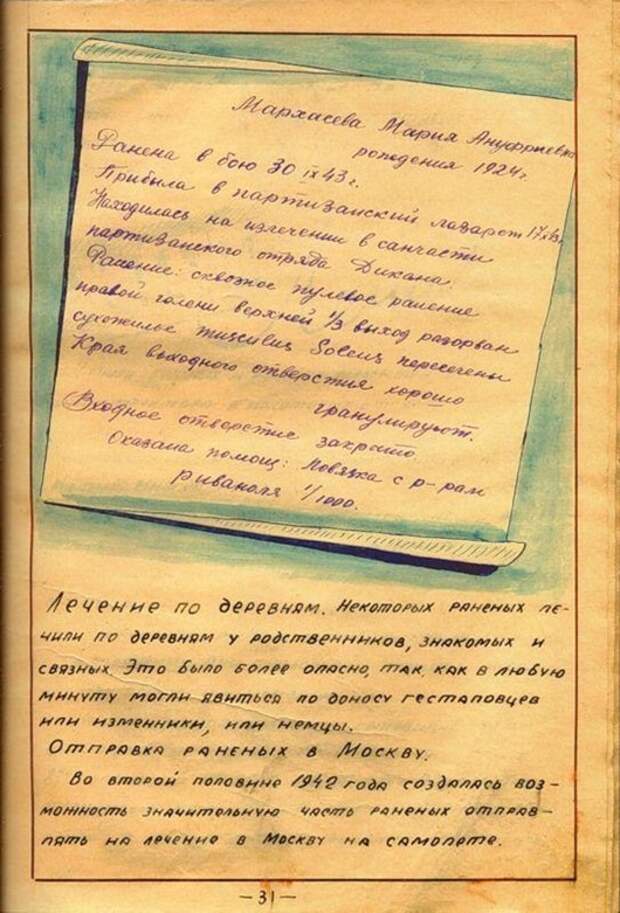 Мархасева Мария Ануфриевна
рождения 1924 г.
Ранена в бою 30 IX 43 г.
Прибыла в партизанский лазарет 17 X 43 г.
Находилась на излечении в санчасти
партизанского отряда Дикана.
Ранение: сквозное пулевое ранение
правой голени верхней 1/3 выход разорван
сухожилье пересечены
Края выходного отверстия хорошо
гранулируют.
Входное отверстие закрыто.
Оказана помощ: Повязка с р-рам
риваноля 1/1000.
Лечение по деревням. Некоторых раненых ле-
чили по деревням у родственников, знакомых и
связных. Это было более опасно, так, как в любую
минуту могли явиться по доносу гестаповцев
или изменники, или немцы.
Отправка раненых в Москву.
Во второй половине 1942 года создалась воз-
можность значительную часть раненых отправ-
лять на лечение в Москву на самолете.
- 31 -